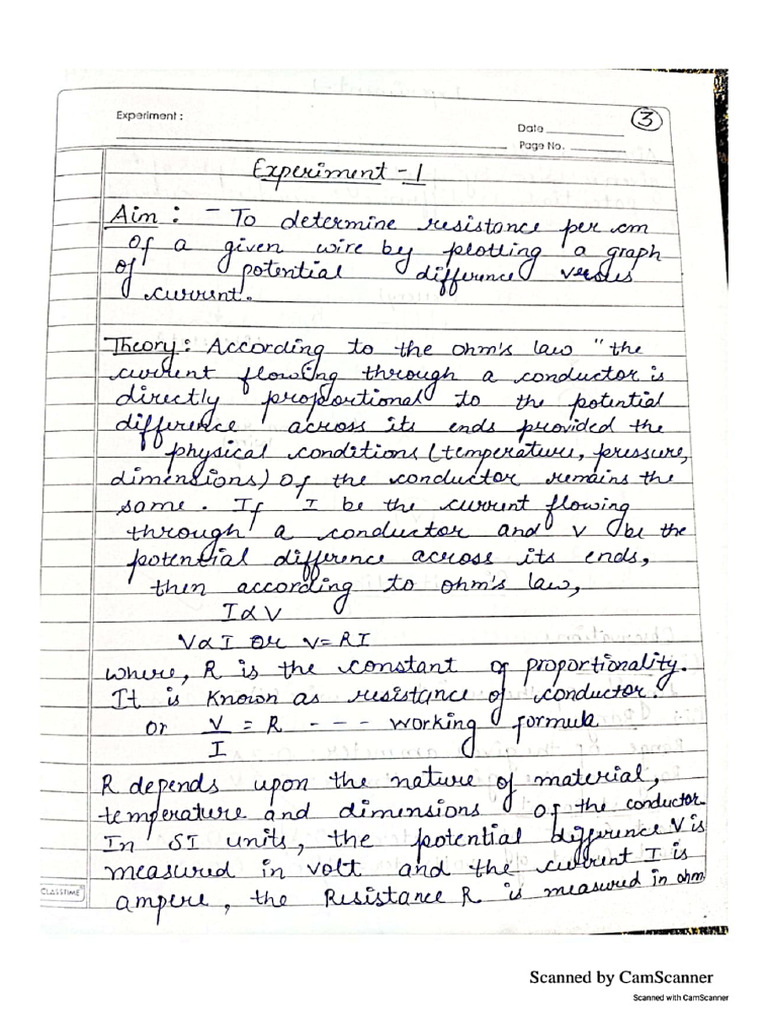 Experiment :
3
Date
Page No.
Experiment - 1
Aim : - To determine resistance per cm
of a given wire by plotting a graph
of potential difference versus
current.
Theory : According to the ohm's law "the
current flowing through a conductor is
directly proportional to the potential
difference across its ends provided the
physical conditions (temperature, pressure,
dimensions) of the conductor remains the
same. If I be the current flowing
through a conductor and V be the
potential difference across its ends,
then according to ohm's law,
I∝V
V∝I or V=RI
where, R is the constant of proportionality.
It is known as resistance of conductor.
or V/I = R - - - working formula
R depends upon the nature of material,
temperature and dimensions of the conductor.
In SI units, the potential difference V is
measured in volt and the current I is
ampere, the Resistance R is measured in ohm
CLASSTIME
Scanned by CamScanner
Scanned with CamScanner